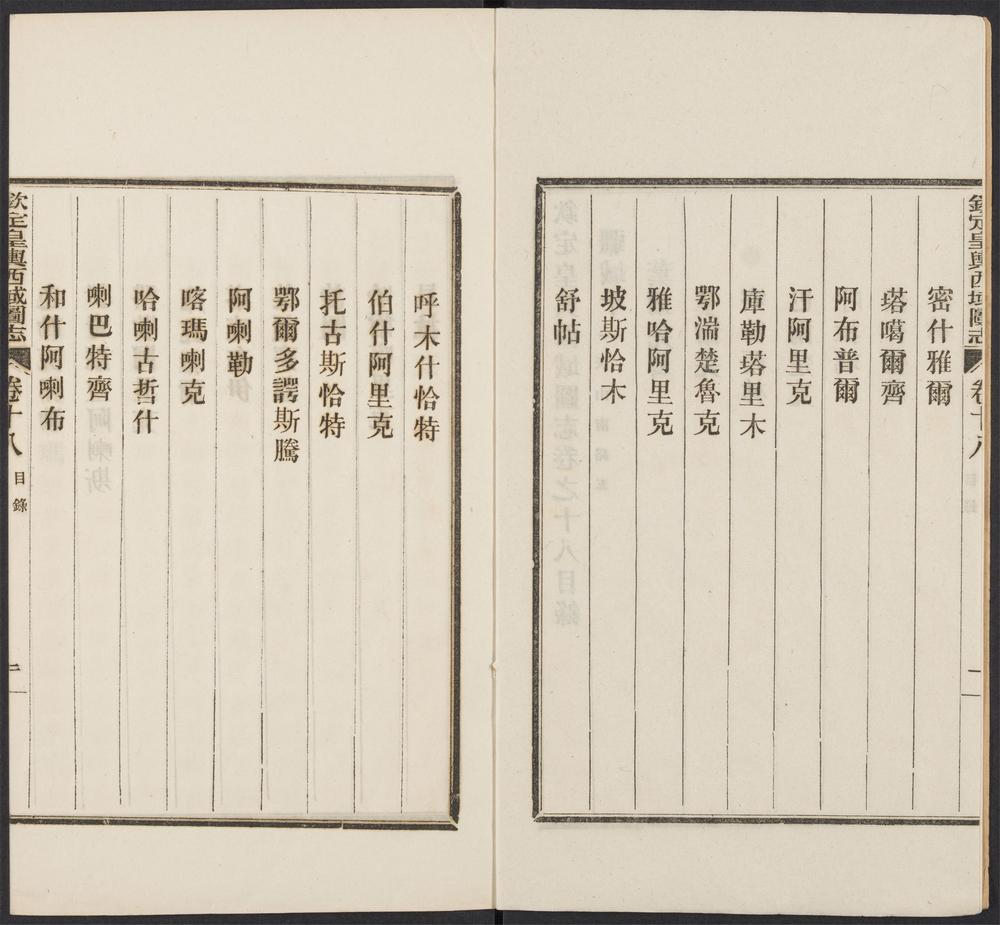 欽定皇輿西域圖志 卷十八
密什雅爾
塔噶爾齊
阿布普爾
汗阿里克
庫勒塔里木
鄂湍楚魯克
雅哈阿里克
坡斯恰木
舒帖
呼木什恰特
伯什阿里克
托古斯恰特
鄂爾多諤斯騰
阿喇勒
喀瑪喇克
哈喇古哲什
喇巴特齊
和什阿喇布
欽定皇輿西域圖志 卷十八 目錄 二